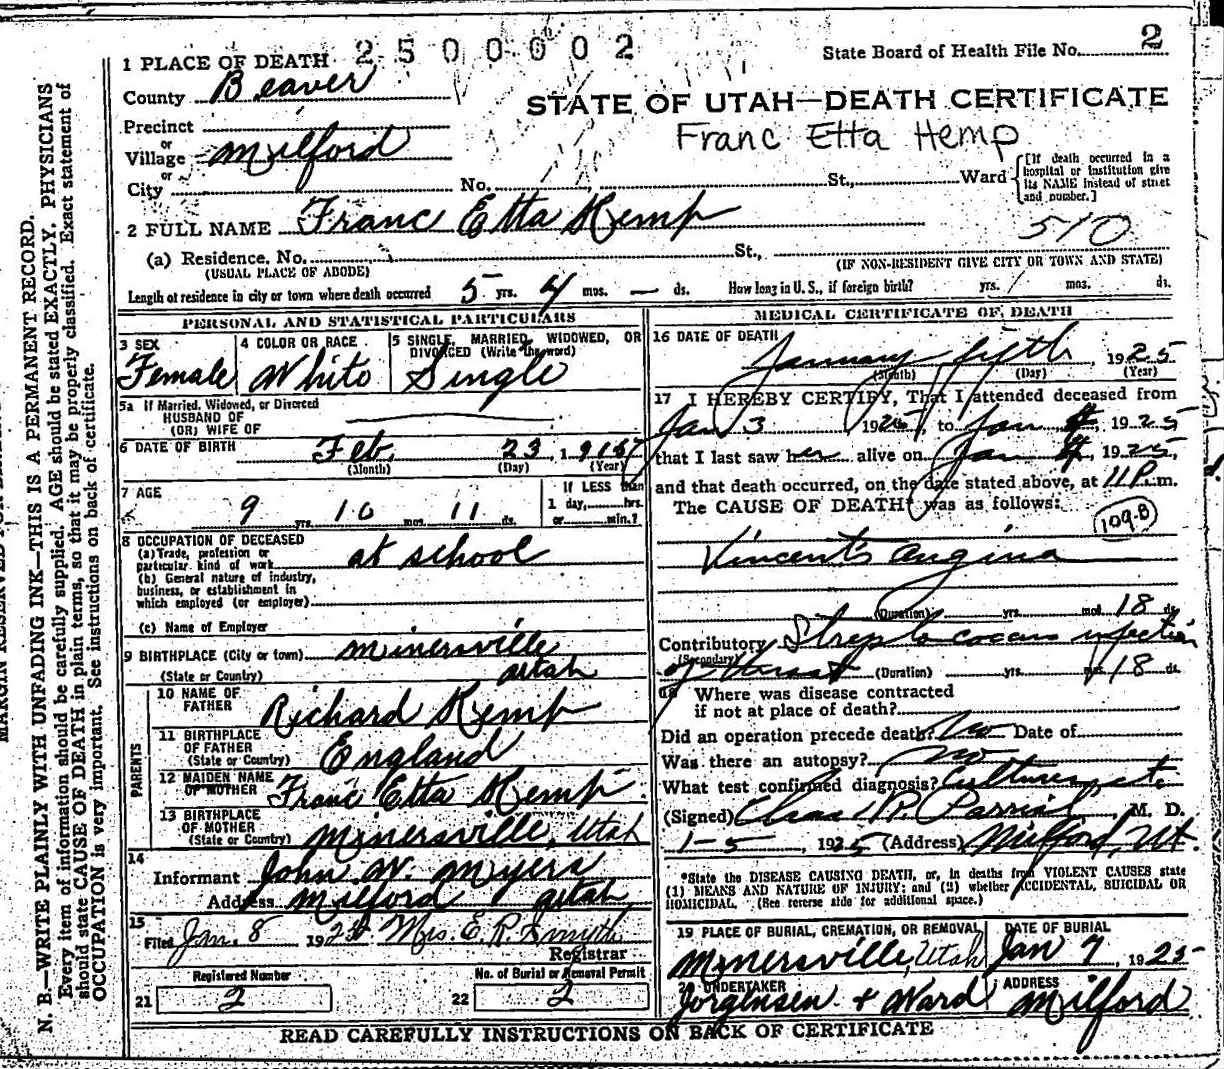 2500002
State Board of Health File No. 2
1 PLACE OF DEATH
County Beaver
STATE OF UTAH—DEATH CERTIFICATE
Franc Etta Hemp
Precinct
or
Village Milford
or
City No. St., Ward
[If death occurred in a hospital or institution give its NAME instead of street and number.]
2 FULL NAME Franc Etta Kemp
510
(a) Residence, No. St.,
(USUAL PLACE OF ABODE) (IF NON-RESIDENT GIVE CITY OR TOWN AND STATE)
Length of residence in city or town where death occurred 5 yrs. 4 mos. — ds. How long in U. S., if foreign birth? yrs. mos. ds.
PERSONAL AND STATISTICAL PARTICULARS
3 SEX Female
4 COLOR OR RACE White
5 SINGLE, MARRIED, WIDOWED, OR DIVORCED (Write the word) Single
5a If Married, Widowed, or Divorced
HUSBAND OF
(OR) WIFE OF
6 DATE OF BIRTH Feb. 23, 191
(Month) (Day) (Year)
7 AGE 9 yrs. 10 mos. 11 ds.
If LESS than 1 day, hrs. or min.?
8 OCCUPATION OF DECEASED
(a) Trade, profession or particular kind of work at school
(b) General nature of industry, business, or establishment in which employed (or employer)
(c) Name of Employer
9 BIRTHPLACE (City or town) Minersville
(State or Country) Utah
PARENTS
10 NAME OF FATHER Richard Kemp
11 BIRTHPLACE OF FATHER (State or Country) England
12 MAIDEN NAME OF MOTHER Franc Etta Kemp
13 BIRTHPLACE OF MOTHER (State or Country) Minersville, Utah
14
Informant John W. Myers
Address Milford Utah
15
Filed Jan. 8 1925 Mrs. E. R. Smyth
Registrar
Registered Number
21 2
No. of Burial or Removal Permit
22 2
MEDICAL CERTIFICATE OF DEATH
16 DATE OF DEATH
January fifth, 1925
(Month) (Day) (Year)
17 I HEREBY CERTIFY, That I attended deceased from
Jan 3, 1925, to Jan 4, 1925
that I last saw her alive on Jan 4, 1925,
and that death occurred, on the date stated above, at 11 P. m.
The CAUSE OF DEATH was as follows:
109-B
Vincent's angina
(Duration) yrs. mos. 18 ds.
Contributory Streptococcus infection
(Secondary)
of throat (Duration) yrs. mos. 18 ds.
18 Where was disease contracted
if not at place of death?
Did an operation precede death? No Date of
Was there an autopsy? no
What test confirmed diagnosis? Cultures, etc.
(Signed) Chas R. Parrish, M. D.
1-5, 1925 (Address) Milford, Ut.
*State the DISEASE CAUSING DEATH, or, in deaths from VIOLENT CAUSES state
(1) MEANS AND NATURE OF INJURY; and (2) whether ACCIDENTAL, SUICIDAL OR
HOMICIDAL. (See reverse side for additional space.)
19 PLACE OF BURIAL, CREMATION, OR REMOVAL
Minersville, Utah
DATE OF BURIAL
Jan 7, 1925
20 UNDERTAKER
Jorgensen & Ward
ADDRESS
Milford
READ CAREFULLY INSTRUCTIONS ON BACK OF CERTIFICATE
N. B.—WRITE PLAINLY WITH UNFADING INK—THIS IS A PERMANENT RECORD.
Every item of information should be carefully supplied. AGE should be stated EXACTLY. PHYSICIANS
should state CAUSE OF DEATH in plain terms, so that it may be properly classified. Exact statement of
OCCUPATION is very important. See instructions on back of certificate.